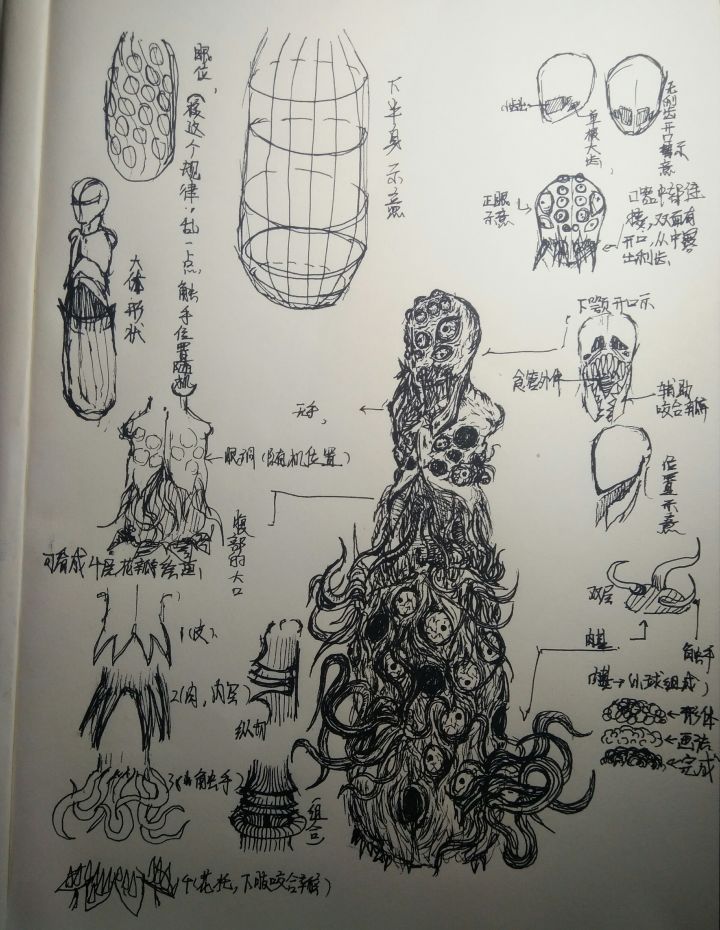 眼位，(按这个规律：乱一点，触手位置随机
下半身示意
大体形状
单根大齿
无利齿开口示意
正眼示意
口器中部连接，双面有开口，从中露出利齿。
下颚开口示
食管外伸
辅助咬合瓣
位置示意
无手，
眼洞(随机位置)
腹部的大口
可看成4层花瓣绘画
1(皮)、
2(肉，内层)
纵切
3(触手)
组合
4(花托，下肢咬合瓣)
双层
肉基
角触手
小球组成)
←形体
←画法
←完成